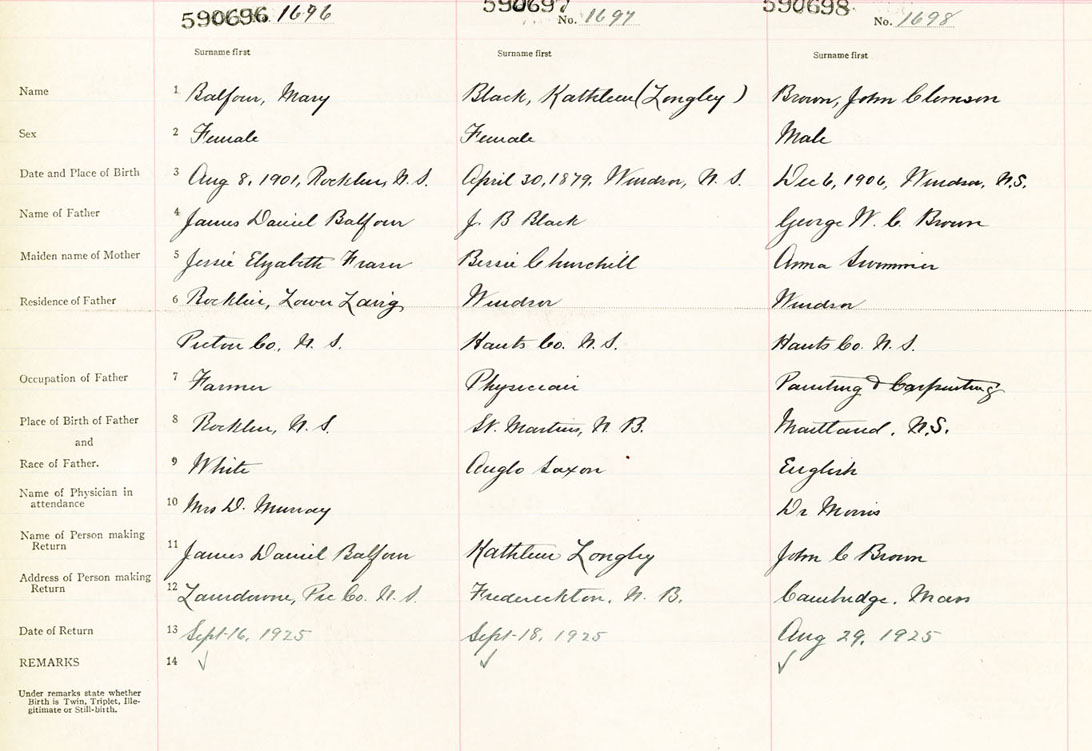 590696 1696 590697 No. 1697 590698 No. 1698
Surname first Surname first Surname first
Name 1 Balfour, Mary Black, Kathleen (Longley) Brown, John Clemson
Sex 2 Female Female Male
Date and Place of Birth 3 Aug 8, 1901, Rocklin, N.S. April 30, 1879, Windsor, N.S. Dec 6, 1906, Windsor, N.S.
Name of Father 4 James Daniel Balfour J. B Black George W. C. Brown
Maiden name of Mother 5 Jessie Elizabeth Fraser Bessie Churchill Anna
Residence of Father 6 Rocklin, Lower Windsor Windsor
Pictou Co. N.S. Hants Co. N.S. Hants Co. N.S.
Occupation of Father 7 Farmer Physician Painting & Carpenting
Place of Birth of Father 8 Rocklin, N.S. St. Martins, N.B. Maitland, N.S.
and
Race of Father. 9 White Anglo Saxon English
Name of Physician in 10 Mrs D. Murray Dr Morris
attendance
Name of Person making 11 James Daniel Balfour Kathleen Longley John C Brown
Return
Address of Person making 12 Lansdowne, Pic Co. N.S. Fredericton, N.B. Cambridge, Mass
Return
Date of Return 13 Sept-16, 1925 Sept-18, 1925 Aug 29, 1925
REMARKS 14 ✓ ✓ ✓
Under remarks state whether
Birth is Twin, Triplet, Ille-
gitimate or Still-birth.